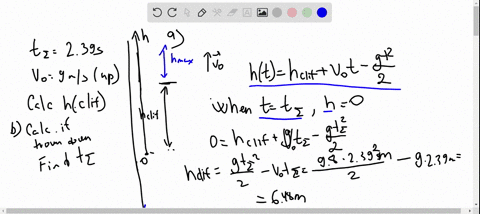 t_Σ = 2.39s
V₀ = 9 m/s (up)
Calc h(clif)
b) Calc. if
thrown down
Find t_Σ
h
a)
hmax
V₀
hclif
0
h(t) = hclif + V₀t - gt²/2
when t = t_Σ , h = 0
0 = hclif + V₀t_Σ - gt_Σ²/2
hclif = gt_Σ²/2 - V₀t_Σ = 9.8 · 2.39² m/2 - 9 · 2.39 m =
= 6.48m